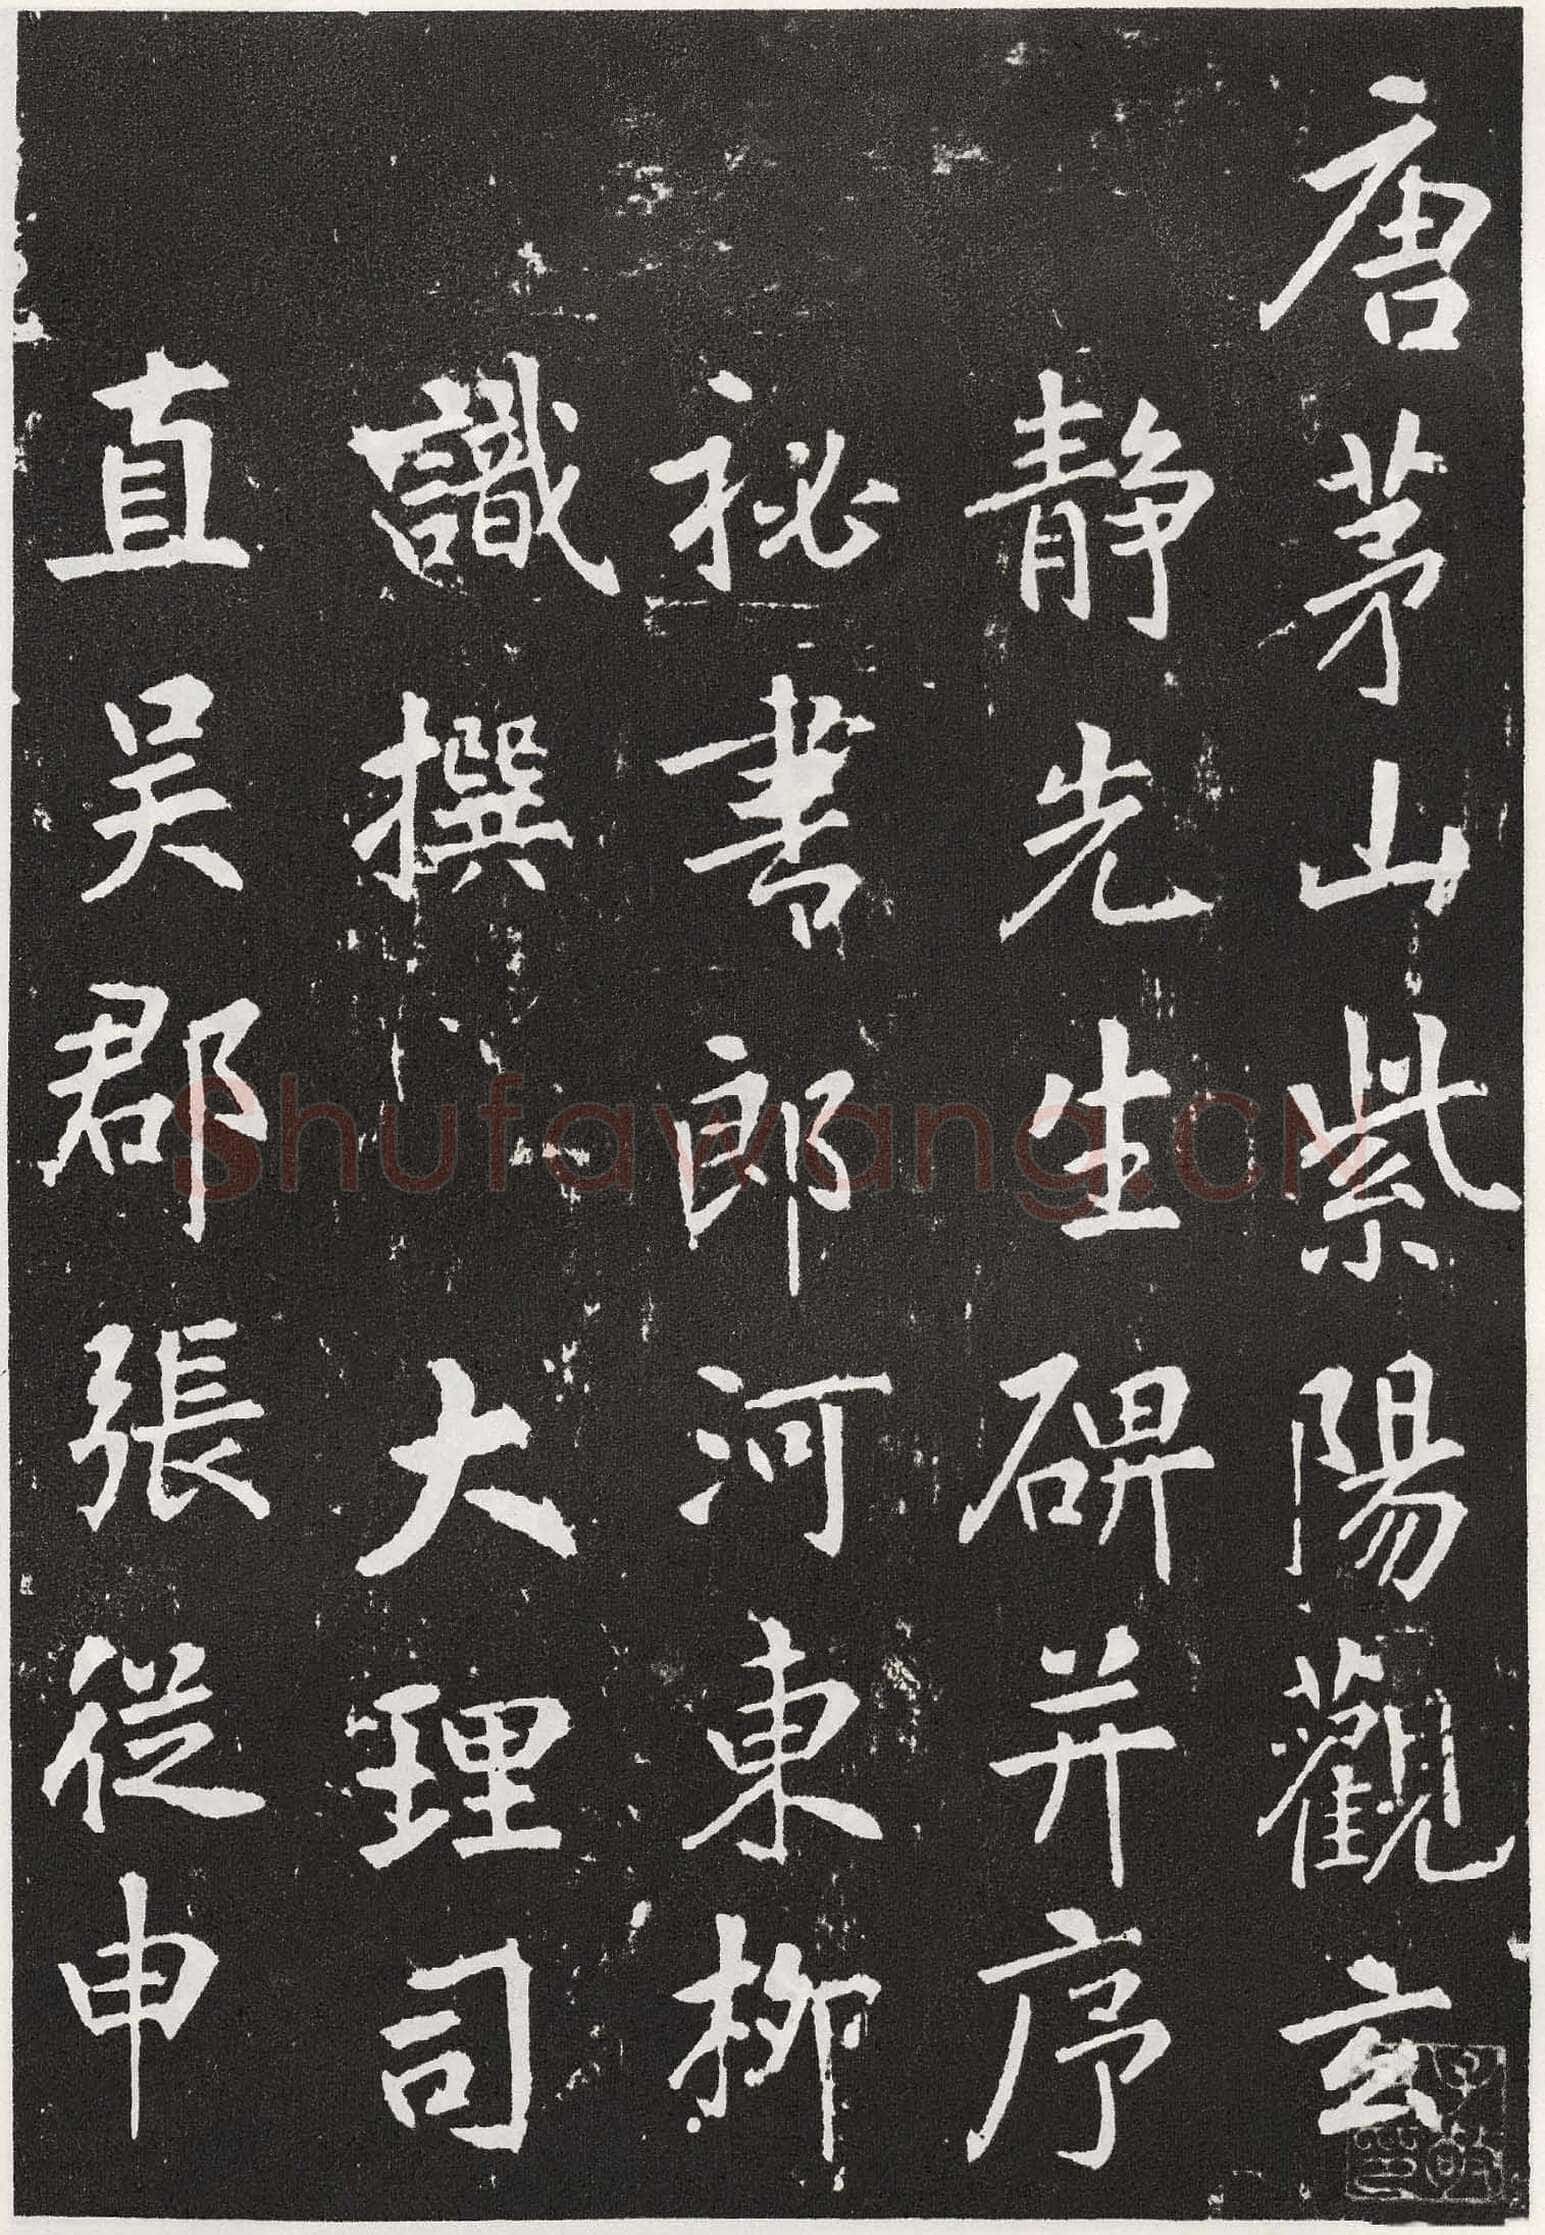 唐茅山紫陽觀玄
静先生碑并序
祕書郎河東柳
識撰大理司
直吴郡張從申
Shufawang.CN